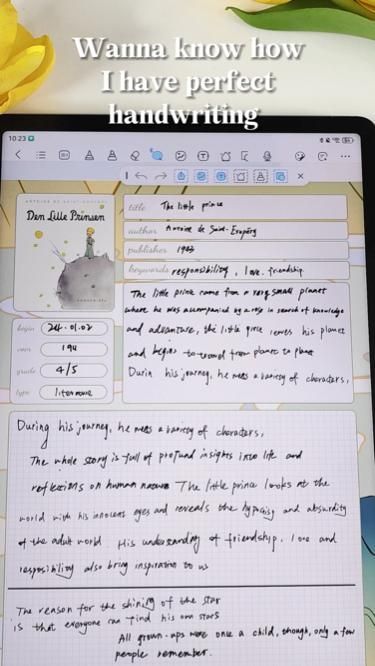 Wanna know how
I have perfect
handwriting
10:23
ANTOINE DE SAINT-EXUPÉRY
Den Lille Prinsen
title The little prince
author Antoine de Saint-Exupéry
publisher 1943
keywords responsibility, love, friendship
begin 24.01.02
194
grade 4/5
type literature
The little prince came from a very small planet
where he was accompanied by a rose in search of knowledge
and adventure, the little prince leaves his planet
and begins to travel from planet to planet
Durin his journey, he meets a variety of characters,
During his journey, he meets a variety of characters,
The whole story is full of profound insights into life and
reflections on human nature The little prince looks at the
world with his innocent eyes and reveals the hypocrisy and absurdity
of the adult world. His understanding of friendship, love and
responsibility also bring inspiration to us
The reason for the shining of the star
is that everyone can find his own stars
All grown-ups were once a child, though, only a few
people remember.